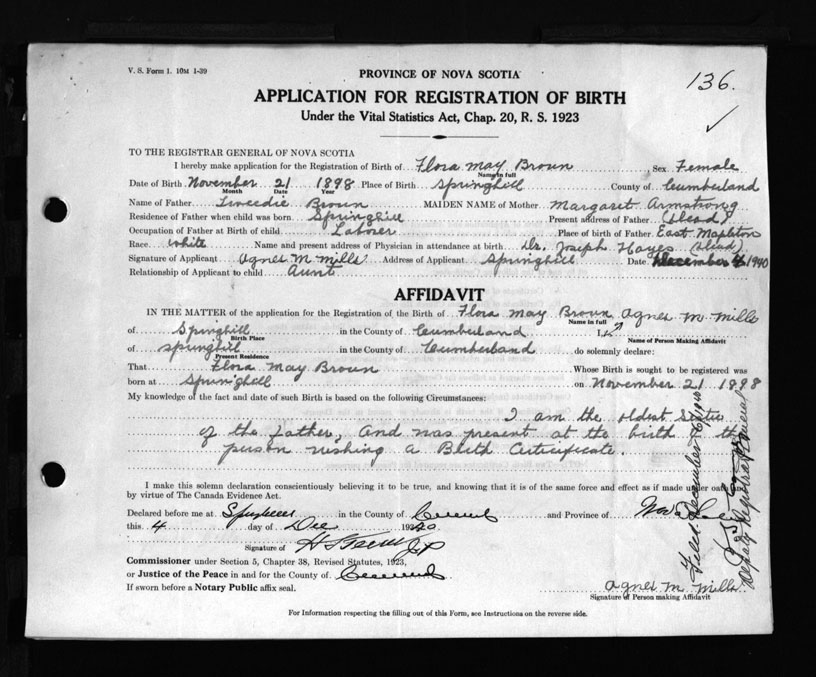 V. S. Form 1. 10M 1-39
136.
PROVINCE OF NOVA SCOTIA
APPLICATION FOR REGISTRATION OF BIRTH
Under the Vital Statistics Act, Chap. 20, R. S. 1923
TO THE REGISTRAR GENERAL OF NOVA SCOTIA
I hereby make application for the Registration of Birth of Flora May Brown, Sex Female
Name in full
Date of Birth November 21 1898 Place of Birth Springhill County of Cumberland
Month Date Year
Name of Father Tweedie Brown MAIDEN NAME of Mother Margaret Armstrong
Residence of Father when child was born Springhill Present address of Father (dead)
Occupation of Father at Birth of child Laborer Place of birth of Father East Mapleton
Race white Name and present address of Physician in attendance at birth Dr. Joseph Hayes (dead)
Signature of Applicant Agnes M Mills Address of Applicant Springhill Date December 4 1940
Relationship of Applicant to child Aunt
AFFIDAVIT
IN THE MATTER of the application for the Registration of the Birth of Flora May Brown Agnes M. Mills
Name in full
of Springhill in the County of Cumberland I,
Birth Place Name of Person Making Affidavit
of Springhill in the County of Cumberland do solemnly declare:
Present Residence
That Flora May Brown Whose Birth is sought to be registered was
born at Springhill on November 21 1898
My knowledge of the fact and date of such Birth is based on the following Circumstances:
I am the oldest Sister
of the father, and was present at the birth of the
person wishing a Birth Certificate.
I make this solemn declaration conscientiously believing it to be true, and knowing that it is of the same force and effect as if made under oath and
by virtue of The Canada Evidence Act.
Declared before me at Springhill in the County of Cumb and Province of Nova Scotia
this 4 day of Dec 1940
Signature of H J.P.
Commissioner under Section 5, Chapter 38, Revised Statutes, 1923,
or Justice of the Peace in and for the County of Cumb
If sworn before a Notary Public affix seal.
Agnes M. Mills
Signature of Person making Affidavit
For Information respecting the filling out of this Form, see Instructions on the reverse side.
Filed. December 1940
Deputy Registrar General